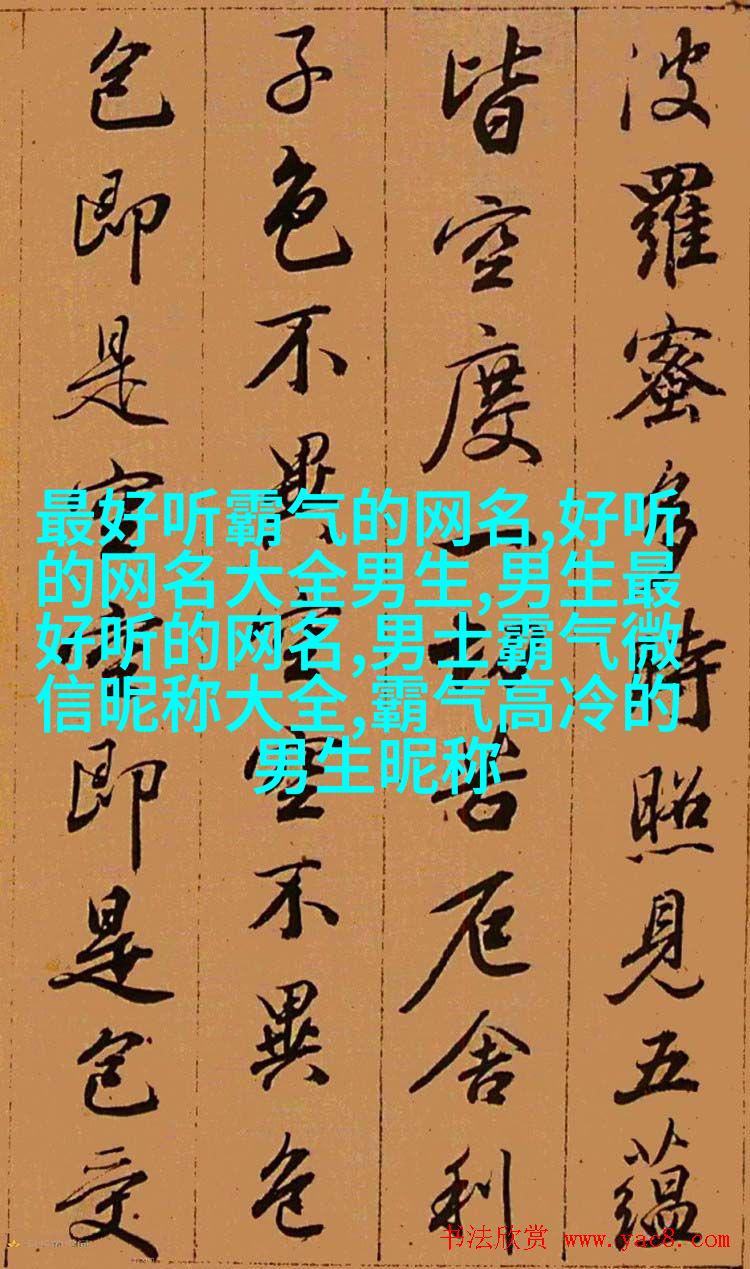 波羅蜜多時照見五蘊
皆空度一切苦厄舍利
子色不異空空不異色
色即是空空即是色受
最好听霸气的网名,好听
的网名大全男生,男生最
好听的网名,男士霸气微
信昵称大全,霸气高冷的
男生昵称
书法欣赏 www.yac8.com